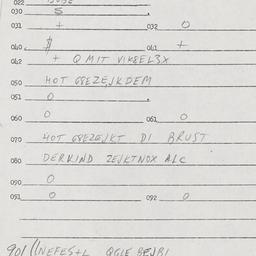 022
030 S
031 + 032 0
040 $ 041 +
042 + Q MIT VIK8EL3X
050 HOT G8EZEJKDEM
051 0
060 0 061 0
070 HOT G8EZEJKT DI BRUST
080 DERKIND ZEJKTNOX ALC
090 0
091 0 092 0
901